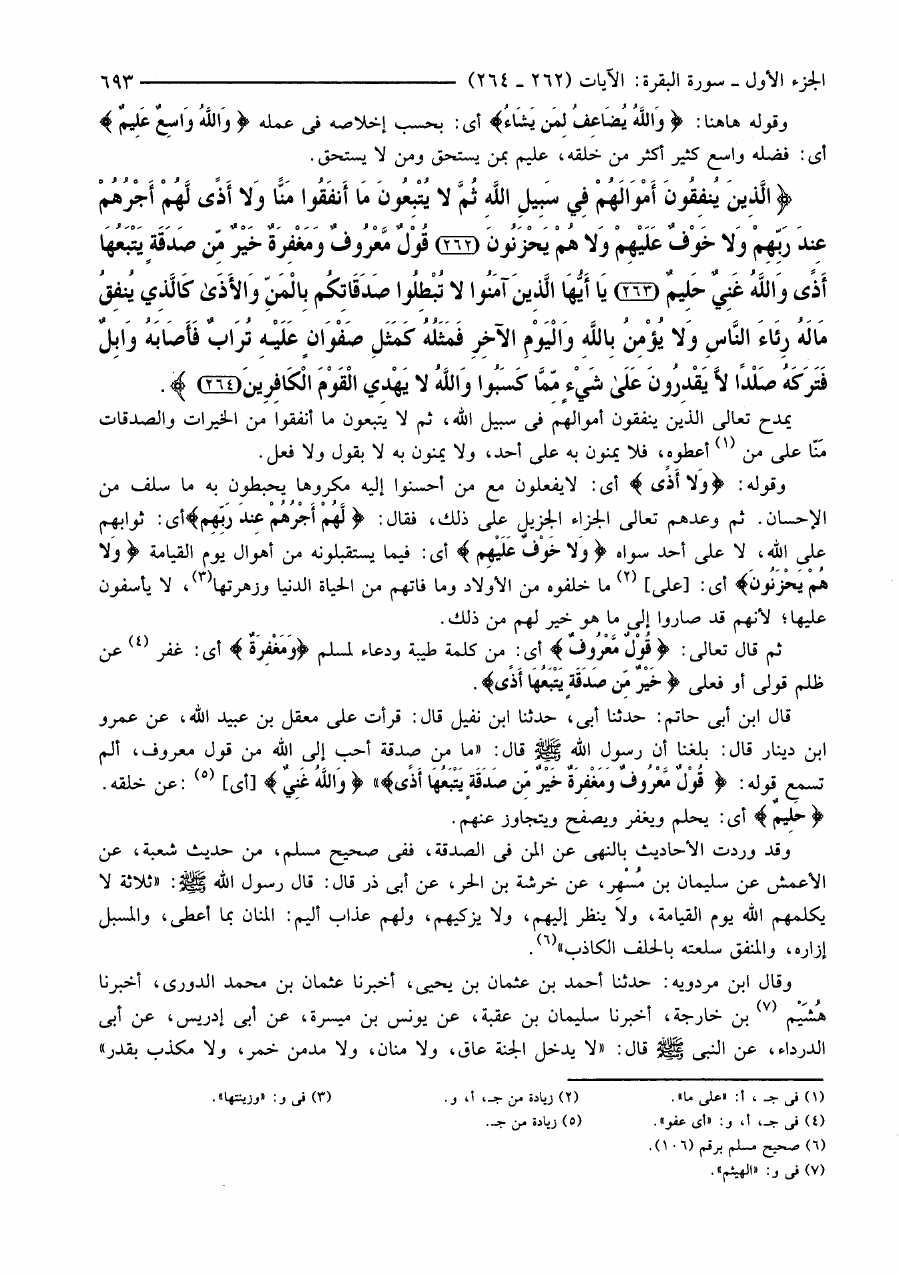 الجزء الأول ـ سورة البقرة: الآيات (٢٦٢ ـ ٢٦٤) ٦٩٣
وقوله هاهنا: ﴿ وَاللَّهُ يُضَاعِفُ لِمَن يَشَاءُ﴾ أى: بحسب إخلاصه فى عمله ﴿ وَاللَّهُ وَاسِعٌ عَلِيمٌ ﴾
أى: فضله واسع كثير أكثر من خلقه، عليم بمن يستحق ومن لا يستحق.
﴿ الَّذِينَ يُنفِقُونَ أَمْوَالَهُمْ فِي سَبِيلِ اللَّهِ ثُمَّ لا يُتْبِعُونَ مَا أَنفَقُوا مَنًّا وَلا أَذًى لَّهُمْ أَجْرُهُمْ
عِندَ رَبِّهِمْ وَلا خَوْفٌ عَلَيْهِمْ وَلا هُمْ يَحْزَنُونَ (٢٦٢) قَوْلٌ مَّعْرُوفٌ وَمَغْفِرَةٌ خَيْرٌ مِّن صَدَقَةٍ يَتْبَعُهَا
أَذًى وَاللَّهُ غَنِيٌّ حَلِيمٌ (٢٦٣) يَا أَيُّهَا الَّذِينَ آمَنُوا لا تُبْطِلُوا صَدَقَاتِكُم بِالْمَنِّ وَالأَذَىٰ كَالَّذِي يُنفِقُ
مَالَهُ رِئَاءَ النَّاسِ وَلا يُؤْمِنُ بِاللَّهِ وَالْيَوْمِ الآخِرِ فَمَثَلُهُ كَمَثَلِ صَفْوَانٍ عَلَيْهِ تُرَابٌ فَأَصَابَهُ وَابِلٌ
فَتَرَكَهُ صَلْدًا لاَّ يَقْدِرُونَ عَلَىٰ شَيْءٍ مِّمَّا كَسَبُوا وَاللَّهُ لا يَهْدِي الْقَوْمَ الْكَافِرِينَ (٢٦٤) ﴾.
يمدح تعالى الذين ينفقون أموالهم فى سبيل الله، ثم لا يتبعون ما أنفقوا من الخيرات والصدقات
مَنّا على من (١) أعطوه، فلا يمنون به على أحد، ولا يمنون به لا بقول ولا فعل.
وقوله: ﴿وَلا أَذًى ﴾ أى: لايفعلون مع من أحسنوا إليه مكروها يحبطون به ما سلف من
الإحسان. ثم وعدهم تعالى الجزاء الجزيل على ذلك، فقال: ﴿ لَّهُمْ أَجْرُهُمْ عِندَ رَبِّهِم﴾أى: ثوابهم
على الله، لا على أحد سواه ﴿ وَلا خَوْفٌ عَلَيْهِمْ ﴾ أى: فيما يستقبلونه من أهوال يوم القيامة ﴿ وَلا
هُمْ يَحْزَنُونَ﴾ أى: [على] (٢) ما خلفوه من الأولاد وما فاتهم من الحياة الدنيا وزهرتها(٣)، لا يأسفون
عليها؛ لأنهم قد صاروا إلى ما هو خير لهم من ذلك.
ثم قال تعالى: ﴿ قَوْلٌ مَّعْرُوفٌ ﴾ أى: من كلمة طيبة ودعاء لمسلم ﴿وَمَغْفِرَةٌ ﴾ أى: غفر (٤) عن
ظلم قولى أو فعلى ﴿ خَيْرٌ مِّن صَدَقَةٍ يَتْبَعُهَا أَذًى﴾.
قال ابن أبى حاتم: حدثنا أبى، حدثنا ابن نفيل قال: قرأت على معقل بن عبيد الله، عن عمرو
ابن دينار قال: بلغنا أن رسول الله ﷺ قال: «ما من صدقة أحب إلى الله من قول معروف، ألم
تسمع قوله: ﴿ قَوْلٌ مَّعْرُوفٌ وَمَغْفِرَةٌ خَيْرٌ مِّن صَدَقَةٍ يَتْبَعُهَا أَذًى﴾» ﴿ وَاللَّهُ غَنِيٌّ ﴾ [أى] (٥) :عن خلقه.
﴿ حَلِيمٌ ﴾ أى: يحلم ويغفر ويصفح ويتجاوز عنهم.
وقد وردت الأحاديث بالنهى عن المن فى الصدقة، ففى صحيح مسلم، من حديث شعبة، عن
الأعمش عن سليمان بن مُسْهِر، عن خرشة بن الحر، عن أبى ذر قال: قال رسول الله ﷺ: «ثلاثة لا
يكلمهم الله يوم القيامة، ولا ينظر إليهم، ولا يزكيهم، ولهم عذاب أليم: المنان بما أعطى، والمسبل
إزاره، والمنفق سلعته بالحلف الكاذب»(٦).
وقال ابن مردويه: حدثنا أحمد بن عثمان بن يحيى، أخبرنا عثمان بن محمد الدورى، أخبرنا
هُشَيْم (٧) بن خارجة، أخبرنا سليمان بن عقبة، عن يونس بن ميسرة، عن أبى إدريس، عن أبى
الدرداء، عن النبى ﷺ قال: «لا يدخل الجنة عاق، ولا منان، ولا مدمن خمر، ولا مكذب بقدر»
(١) فى جـ ، أ: «على ما». (٢) زيادة من جـ، أ، و. (٣) فى و: «وزينتها».
(٤) فى جـ، أ، و: «أى عفو». (٥) زيادة من جـ.
(٦) صحيح مسلم برقم (١٠٦).
(٧) فى و: «الهيثم».